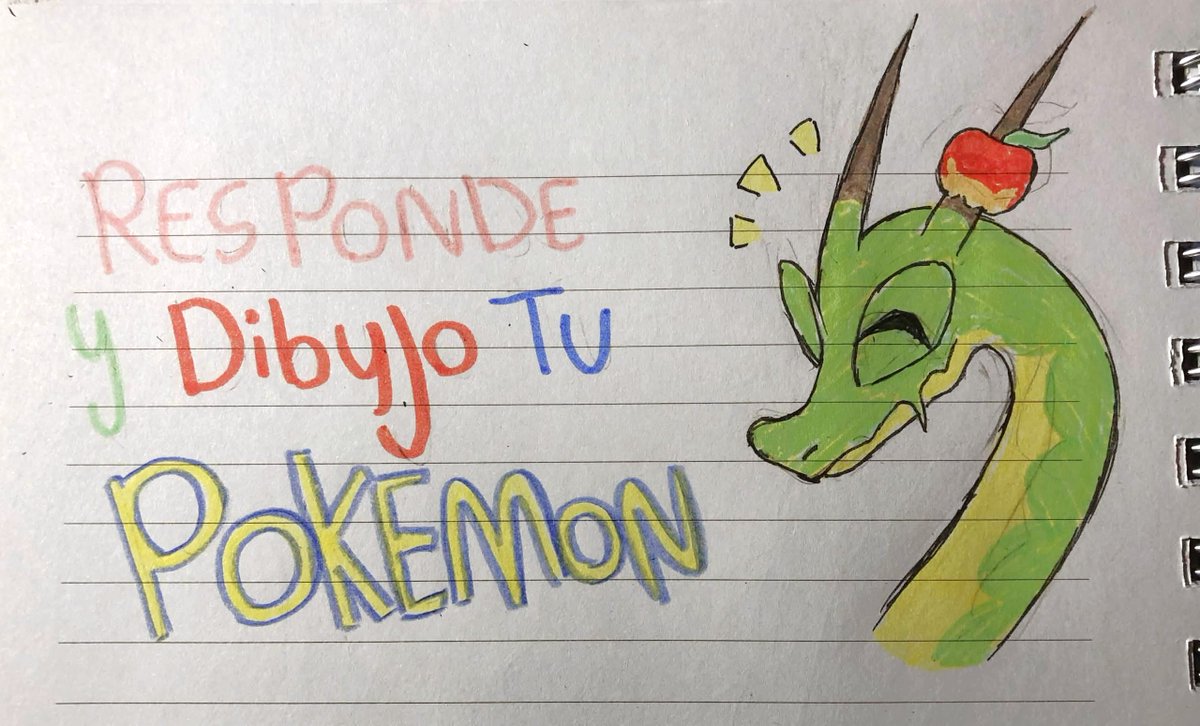 RESPONDE
y Dibujo Tu
POKEMON